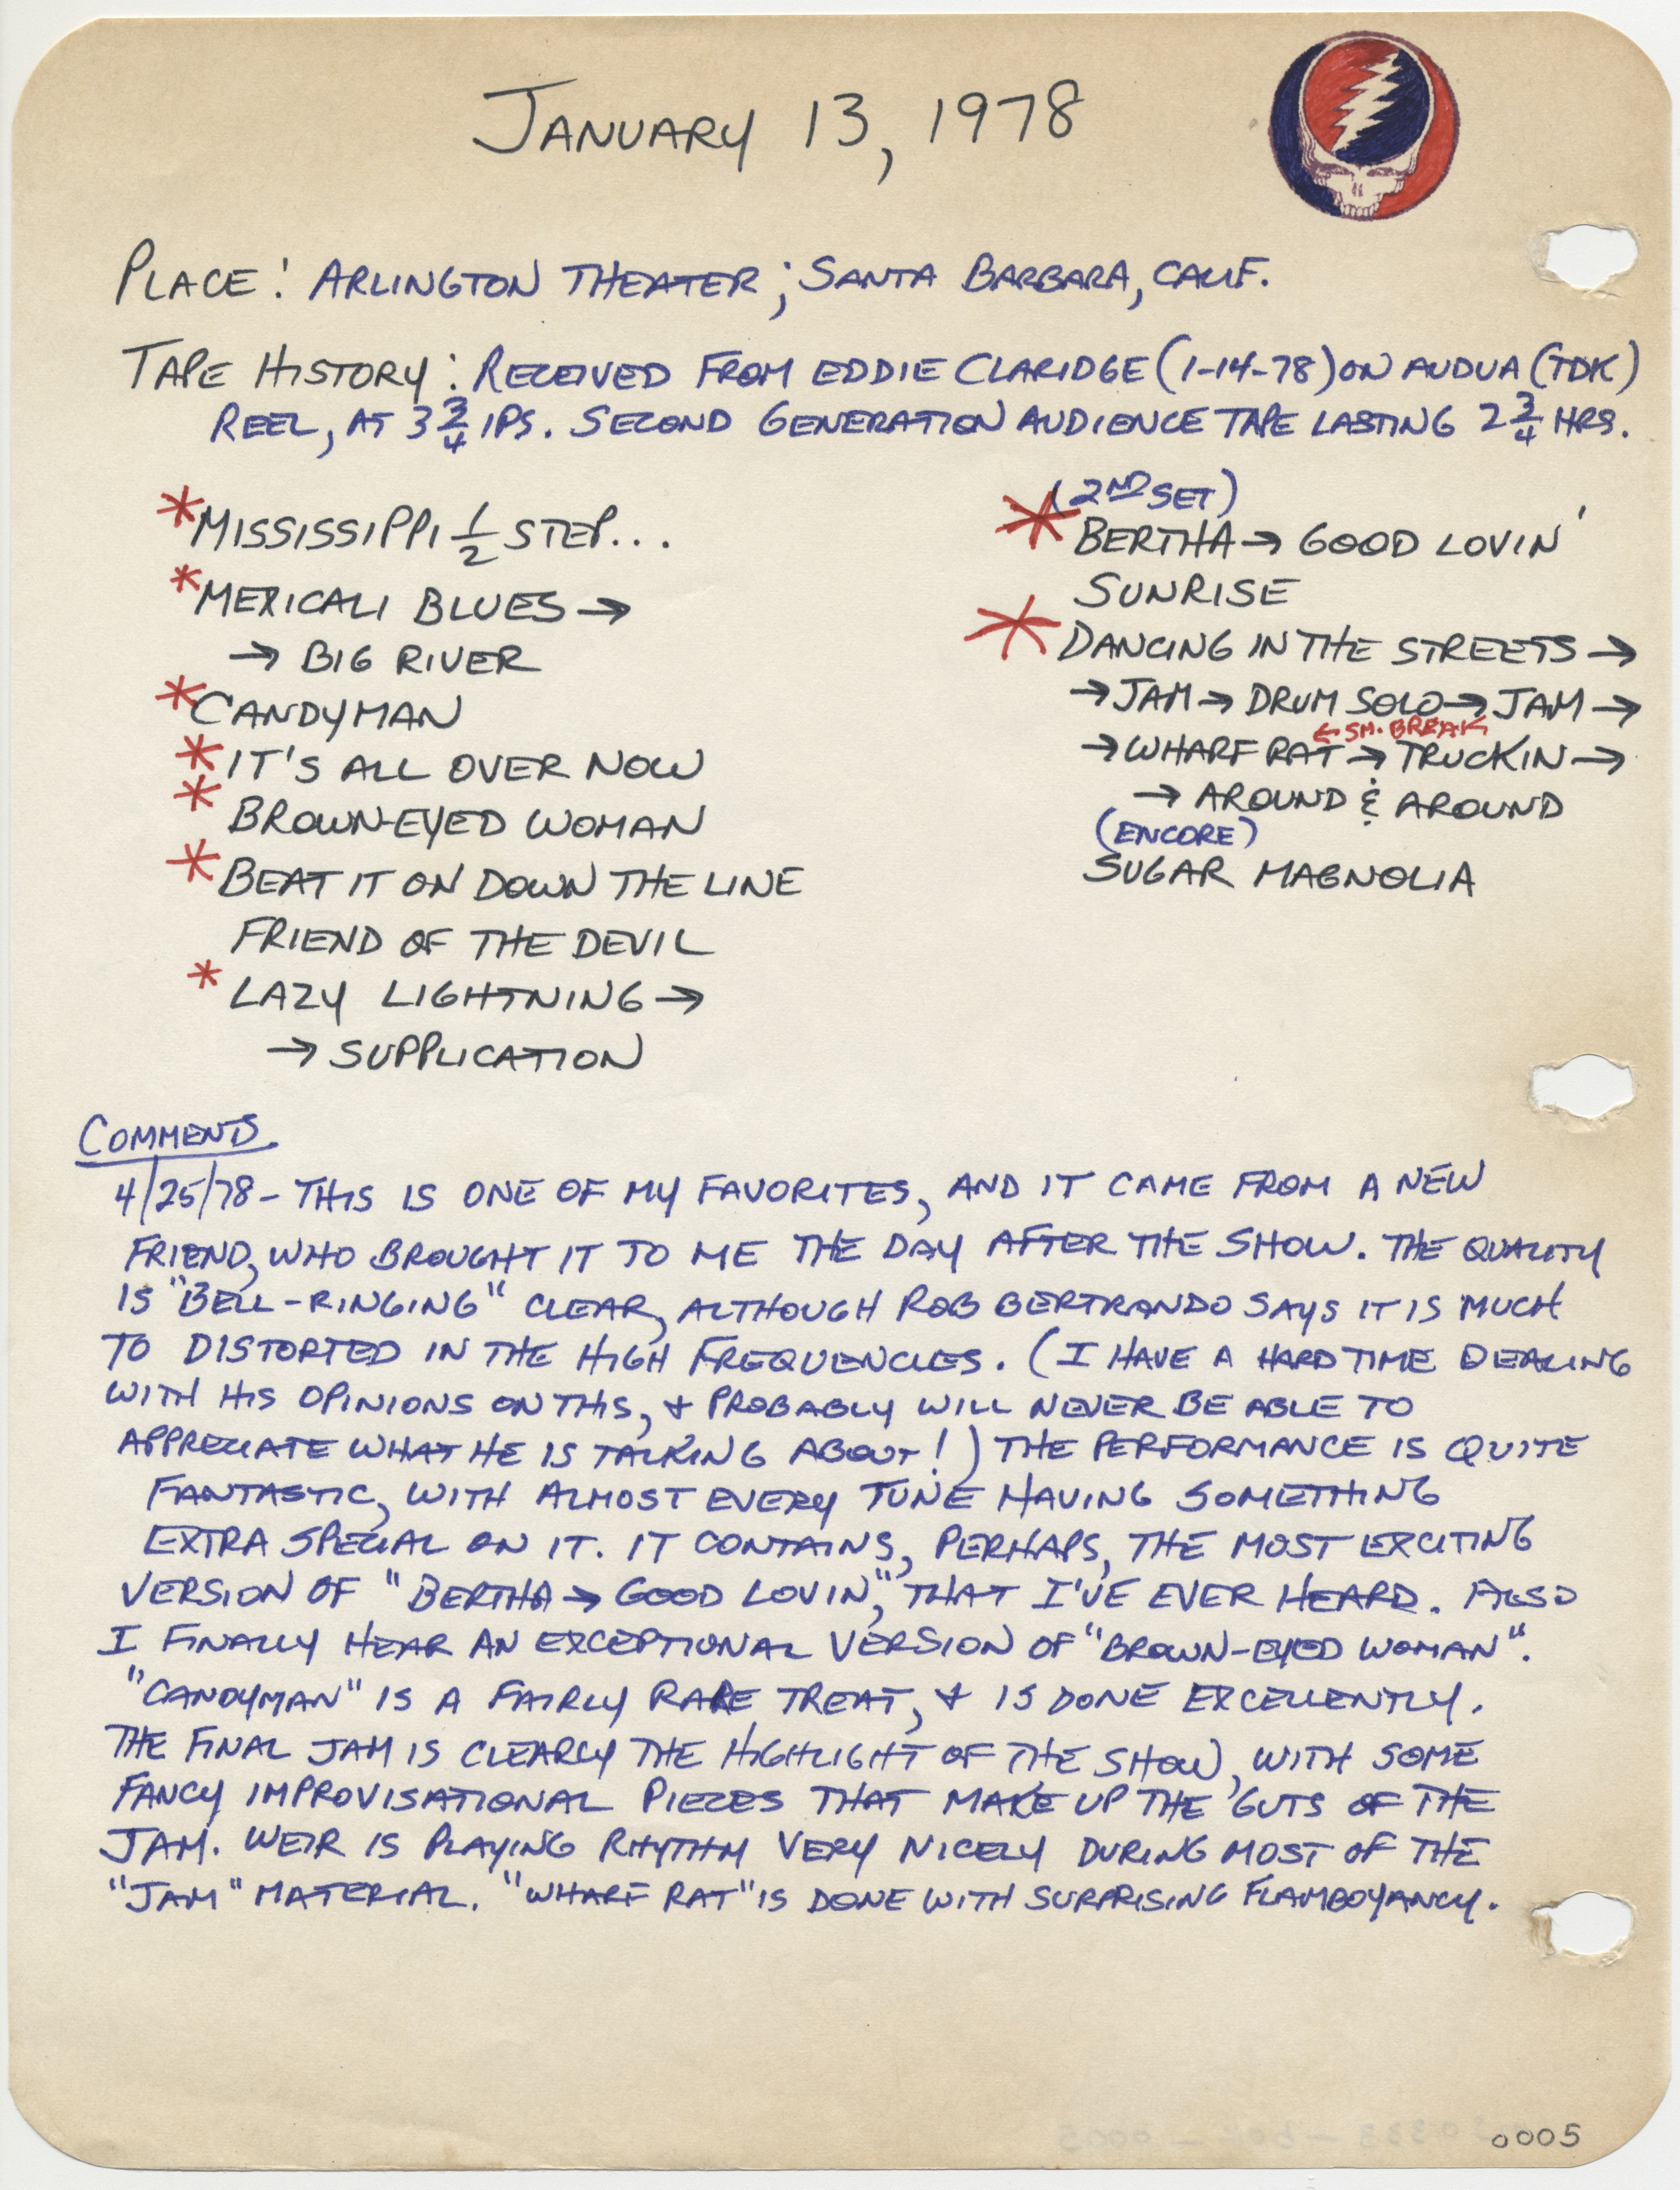 JANUARY 13, 1978
PLACE: ARLINGTON THEATER; SANTA BARBARA, CALIF.
TAPE HISTORY: RECEIVED FROM EDDIE CLARIDGE (1-14-78) ON AUDUA (TDK)
REEL, AT 3 3/4 IPS. SECOND GENERATION AUDIENCE TAPE LASTING 2 3/4 HRS.
*MISSISSIPPI 1/2 STEP...
*MEXICALI BLUES →
→ BIG RIVER
*CANDYMAN
*IT'S ALL OVER NOW
*BROWN-EYED WOMAN
*BEAT IT ON DOWN THE LINE
FRIEND OF THE DEVIL
*LAZY LIGHTNING →
→ SUPPLICATION
(2ND SET)
*BERTHA → GOOD LOVIN'
SUNRISE
*DANCING IN THE STREETS →
→ JAM → DRUM SOLO → JAM →
← SM. BREAK
→ WHARF RAT → TRUCKIN →
→ AROUND & AROUND
(ENCORE)
SUGAR MAGNOLIA
COMMENTS
4/25/78 - THIS IS ONE OF MY FAVORITES, AND IT CAME FROM A NEW
FRIEND, WHO BROUGHT IT TO ME THE DAY AFTER THE SHOW. THE QUALITY
IS "BELL-RINGING" CLEAR, ALTHOUGH ROB BERTRANDO SAYS IT IS MUCH
TO DISTORTED IN THE HIGH FREQUENCIES. (I HAVE A HARD TIME DEALING
WITH HIS OPINIONS ON THIS, & PROBABLY WILL NEVER BE ABLE TO
APPRECIATE WHAT HE IS TALKING ABOUT!) THE PERFORMANCE IS QUITE
FANTASTIC, WITH ALMOST EVERY TUNE HAVING SOMETHING
EXTRA SPECIAL ON IT. IT CONTAINS, PERHAPS, THE MOST EXCITING
VERSION OF "BERTHA → GOOD LOVIN," THAT I'VE EVER HEARD. ALSO
I FINALLY HEAR AN EXCEPTIONAL VERSION OF "BROWN-EYED WOMAN".
"CANDYMAN" IS A FAIRLY RARE TREAT, & IS DONE EXCELLENTLY.
THE FINAL JAM IS CLEARLY THE HIGHLIGHT OF THE SHOW, WITH SOME
FANCY IMPROVISATIONAL PIECES THAT MAKE UP THE GUTS OF THE
JAM. WEIR IS PLAYING RHYTHM VERY NICELY DURING MOST OF THE
"JAM" MATERIAL. "WHARF RAT" IS DONE WITH SURPRISING FLAMBOYANCY.
0005